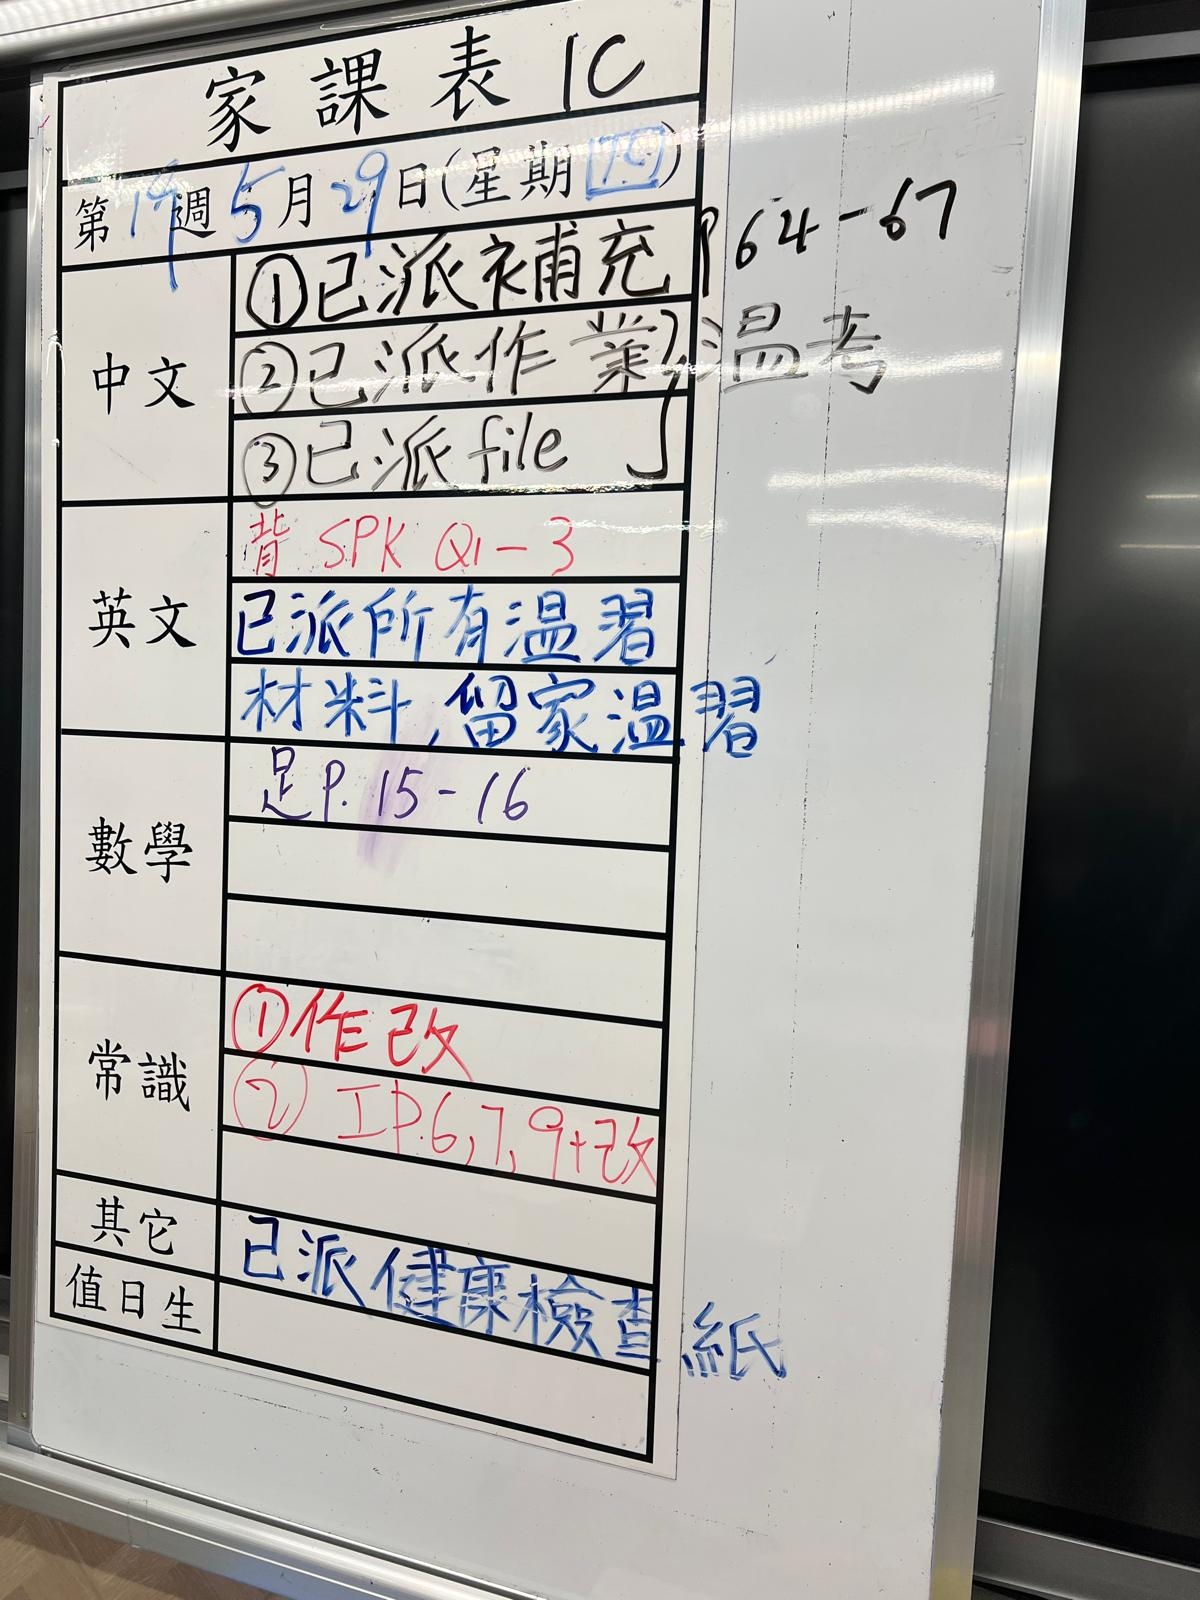 家課表 1C
第19週5月29日(星期四)
中文
①已派補充 P 64-67
②已派作業 } 温考
③已派file
英文
背 SPK Q1-3
已派所有温習
材料,留家温習
數學
足P. 15-16
常識
①作改
②工P.6,7,9+改
其它
已派健康檢查紙
值日生